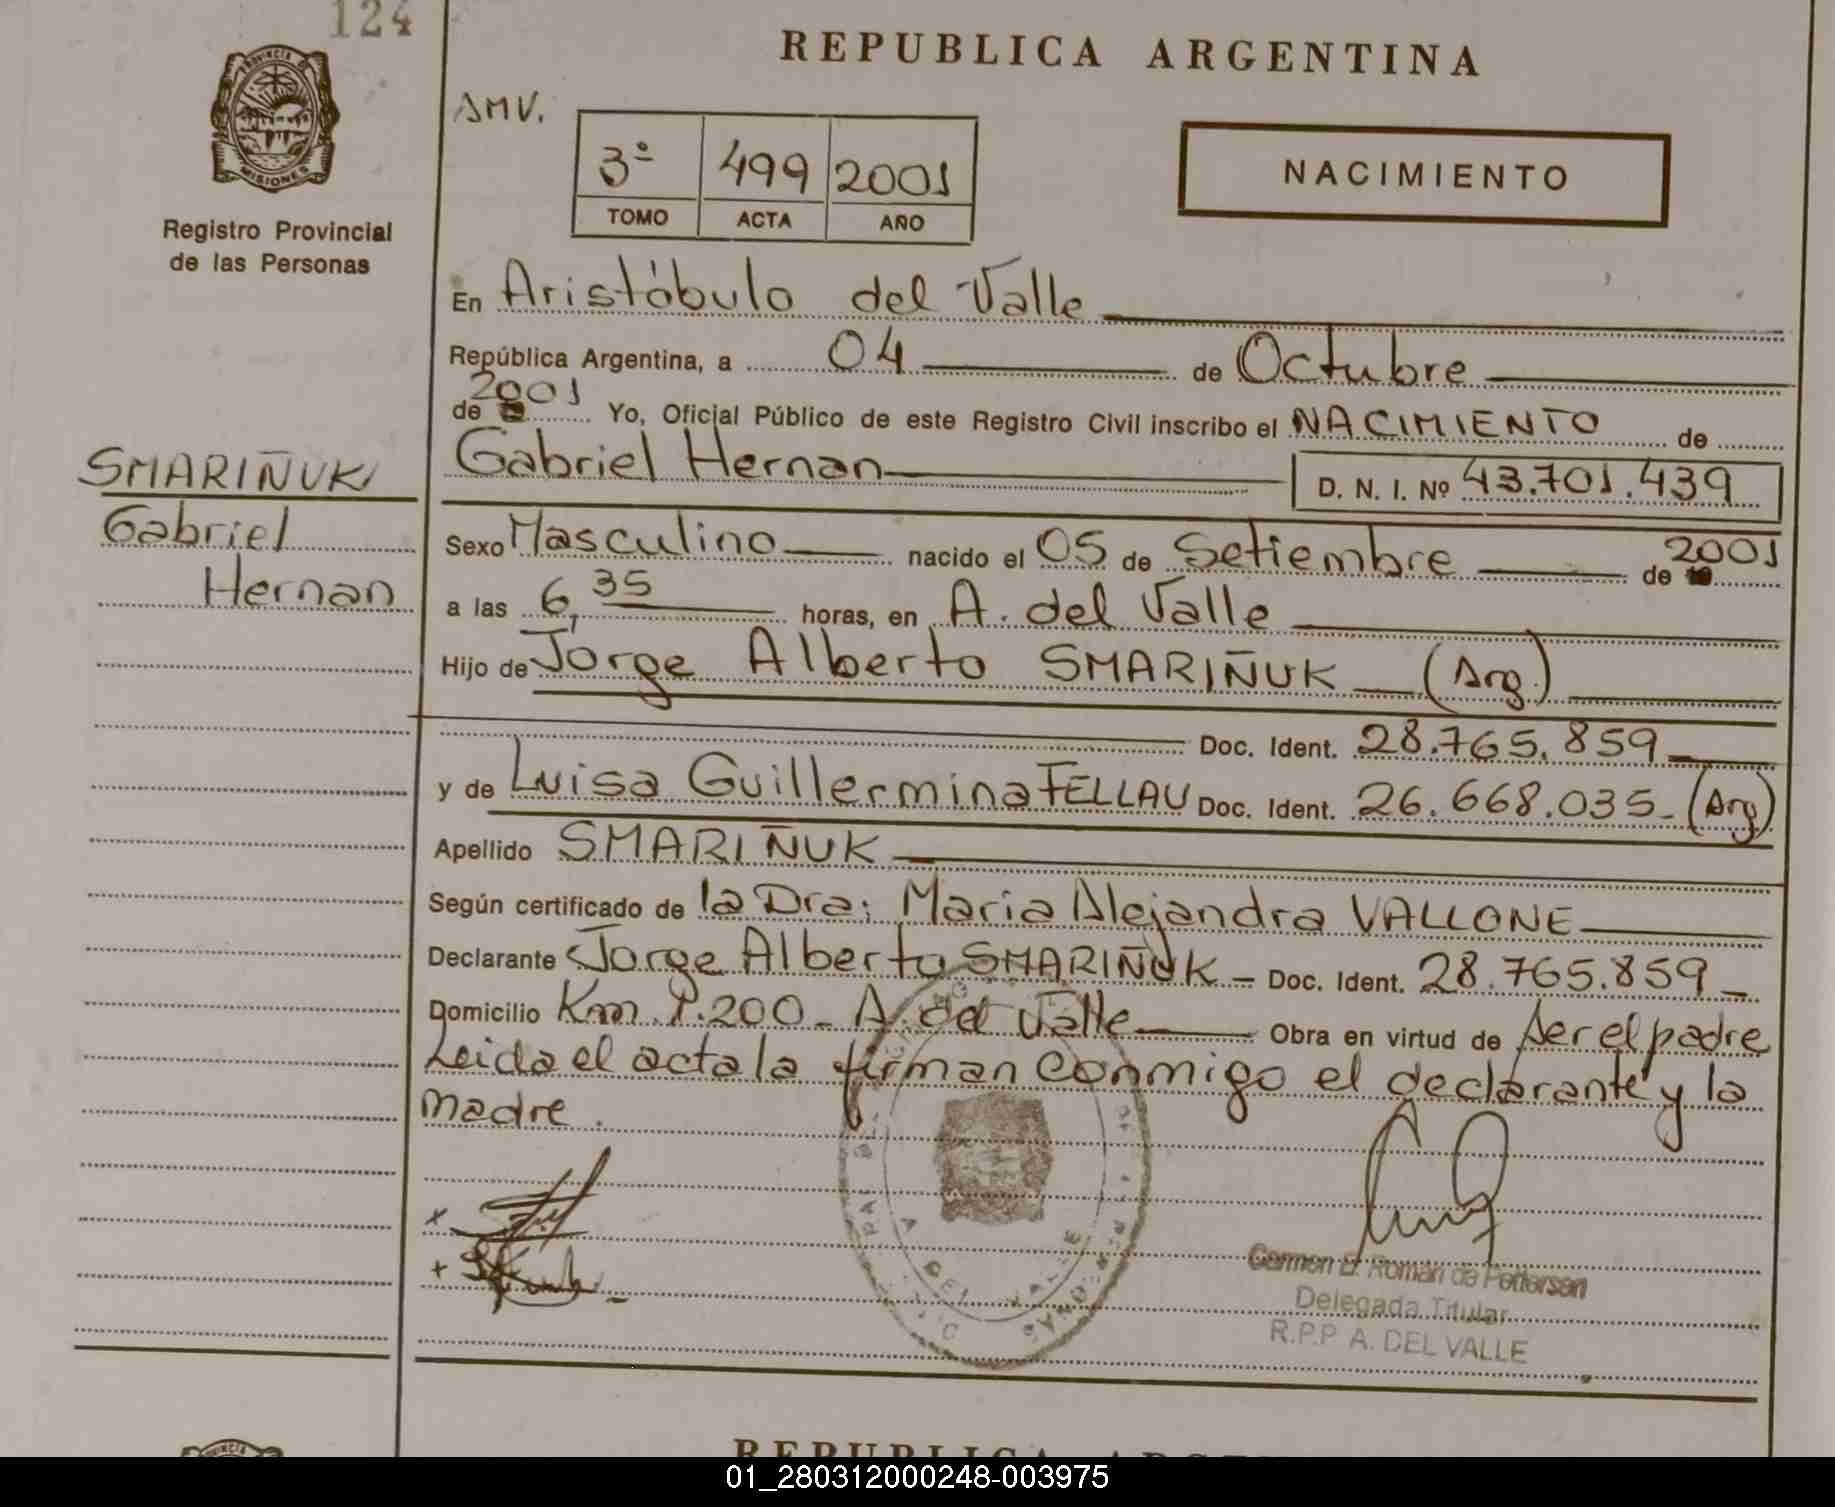 124
REPUBLICA ARGENTINA
AMV.
3º 499 2001
TOMO ACTA AÑO
NACIMIENTO
PROVINCIA DE
MISIONES
Registro Provincial
de las Personas
En Aristóbulo del Valle
República Argentina, a 04 de Octubre
de 2001 Yo, Oficial Público de este Registro Civil inscribo el NACIMIENTO de
Gabriel Hernan D. N. I. Nº 43.701.439
SMARIÑUK
Gabriel
Hernan
Sexo Masculino nacido el 05 de Setiembre de 2001
a las 6,35 horas, en A. del Valle
Hijo de Jorge Alberto SMARIÑUK (Arg.)
Doc. Ident. 28.765.859
y de Luisa Guillermina FELLAU Doc. Ident. 26.668.035 - (Arg)
Apellido SMARIÑUK
Según certificado de la Dra: Maria Alejandra VALLONE
Declarante Jorge Alberto SMARIÑUK - Doc. Ident. 28.765.859 -
Domicilio Km. 1.200 - A. del Valle Obra en virtud de ser el padre
Leida el acta la firman conmigo el declarante y la
madre.
Carmen E. Roman de Pettersen
Delegada Titular
R.P.P A. DEL VALLE
REPUBLICA
01_280312000248-003975